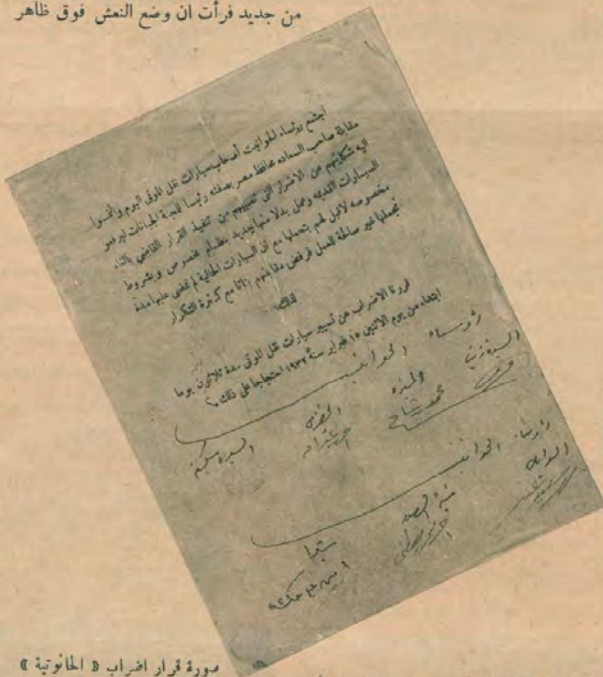 من جديد فرأت ان وضع النعش فوق ظاهر
اجتمع رؤساء الحوانيت أصحاب سيارات نقل الموتى اليوم والتمسوا
مقابلة صاحب السعاده محافظ مصر بصفته رئيسا للجنة الجبانات ليرفعو
اليه شكايتهم عن الاضرار التى تصيبهم من تنفيذ القرار القاضى بالغاء
السيارات القديمه وعمل بدلا منها جديد بنظام مخصوص وبشروط
مخصوصه لاقبل لهم بتحملها مع أن السيارات الحالية لم تمضى عليها مدة
تجعلها غير صالحة للعمل فرفض مقابلتهم بتاتا مع كثرة التكرار
لذلك
قررنا الاضراب عن تسيير سيارات نقل الموتى مدة ثلاثون يوما
ابتداء من يوم الاثنين ١٥ فبراير سنة ١٩٣٢ احتجاجا على ذلك
رؤساء الحوانيت
السيده زينب
محمد
السيده سكينه
رؤساء الحوانيت
صورة قرار اضراب « الحانوتية »